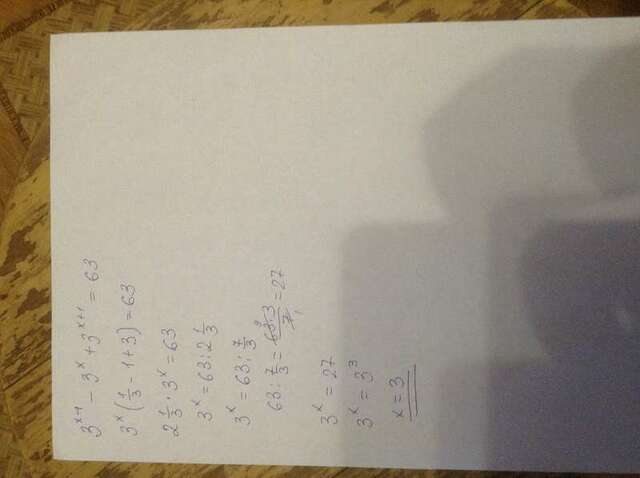 3^{x-1} - 3^x + 3^{x+1} = 63
3^x (\frac{1}{3} - 1 + 3) = 63
2\frac{1}{3} \cdot 3^x = 63
3^x = 63 : 2\frac{1}{3}
3^x = 63 : \frac{7}{3}
63 : \frac{7}{3} = \frac{\cancel{63}^9 \cdot 3}{\cancel{7}_1} = 27
3^x = 27
3^x = 3^3
x = 3